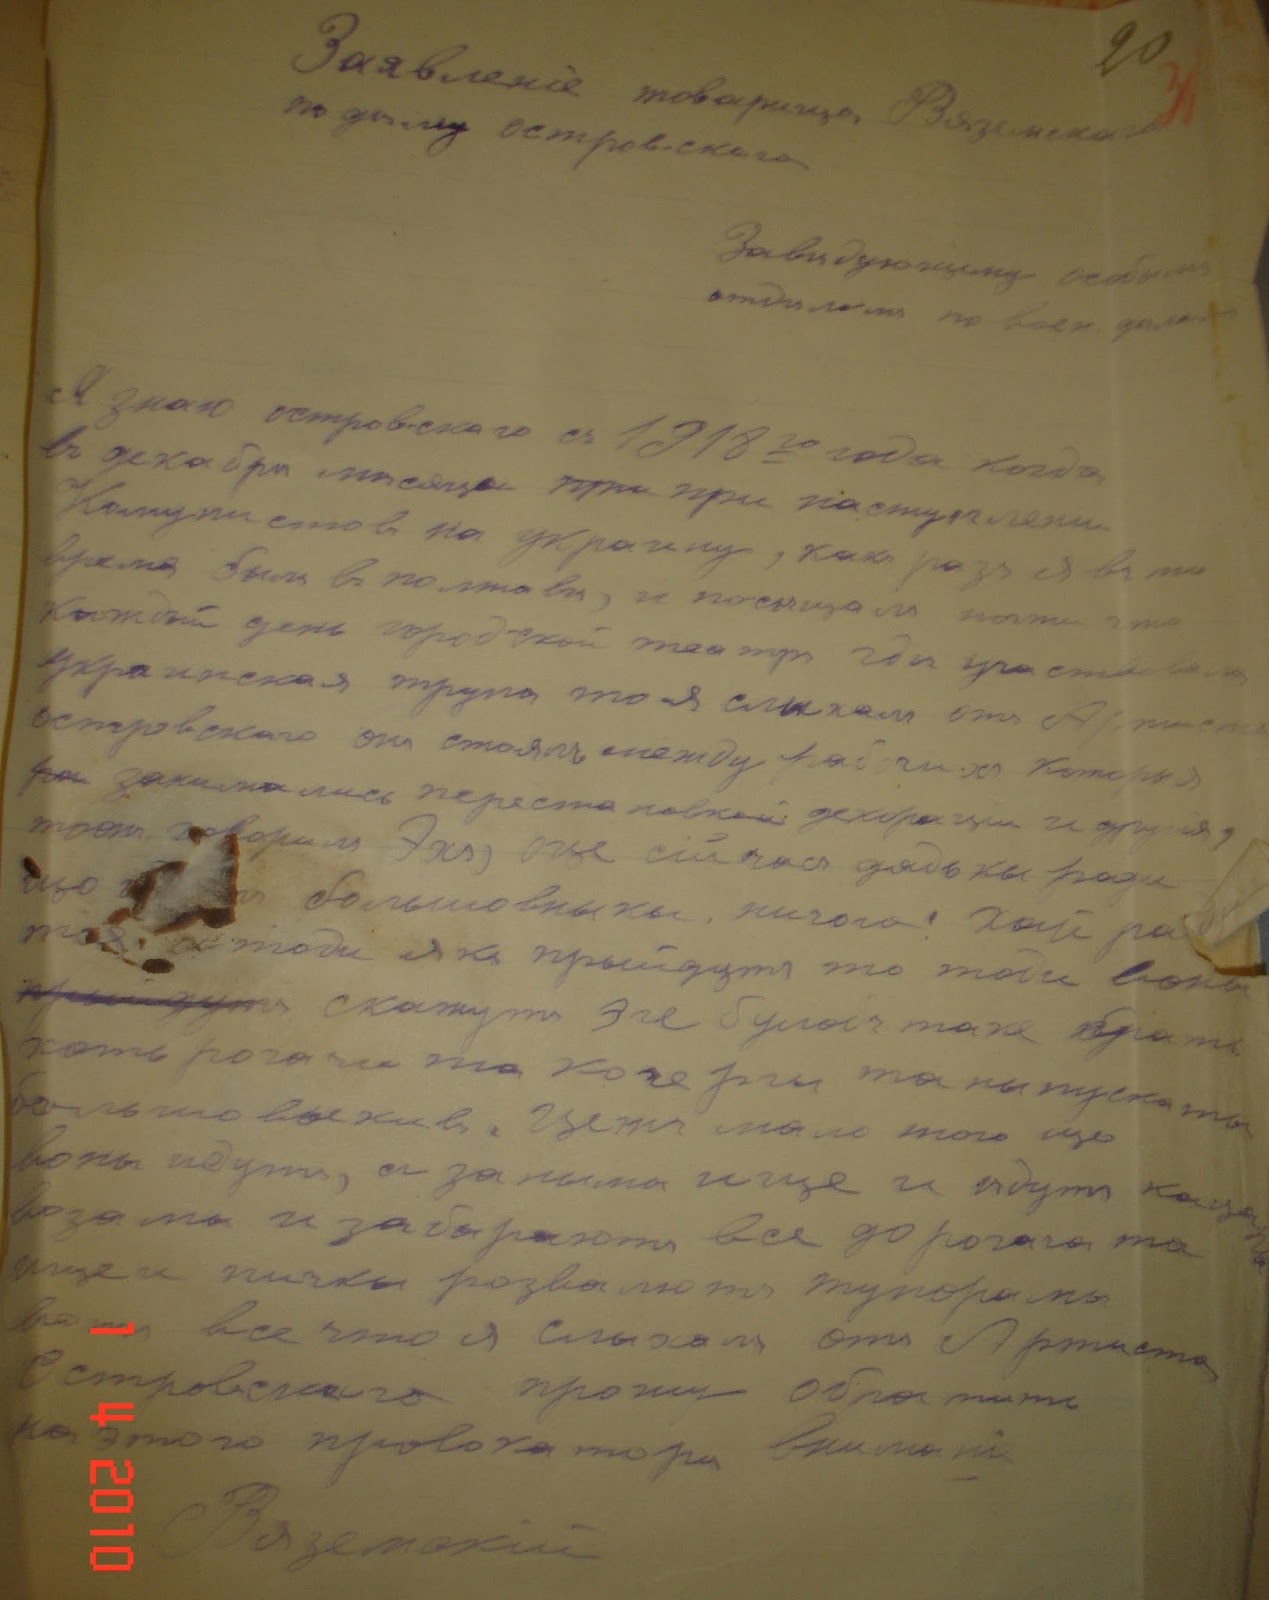 20
Заявленіе товарища Вяземскаго
по дѣлу островскаго
Завѣдующему особымъ
отдѣломъ по воен. дѣламъ
Я знаю островскаго съ 1918го года когда
въ декабрѣ мѣсяца при наступлени
Комунистовъ на украину, какъ разъ я въ то
время былъ въ полтавѣ, и посѣщалъ почти что
каждый день городской театръ гдѣ участвовала
украинская трупа то я слыхалъ отъ Артиста
островскаго онъ стоялъ между рабочихъ которыя
занимались перестановкой декораціи и другія,
говорилъ Эхъ, оце сійчасъ дядькы ради
що большовыкы. ничого! Хай
тоди якъ прыйдутъ то тоди воны
скажутъ Эге булобъ таке брать
хоть рогачи та кочергы та ны пускаты
большовыкивъ. Цежъ мало того що
воны идутъ, а за нымы ище и идутъ
возамы и забырають все до рогача та
ище и пичкы розвалютъ тупорамы
вотъ все что я слыхалъ отъ Артиста
Островскаго прошу обратить
на этого провокатора вниманіе
Вяземскій
1 4 2010